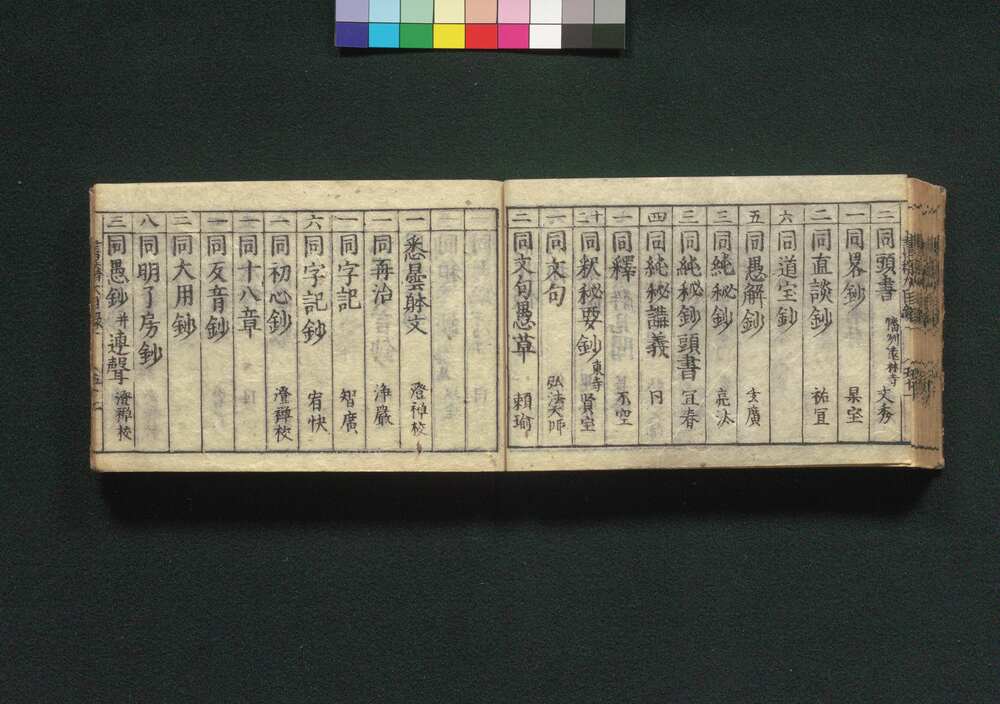 二 同頭書 播州遠林寺 丈秀
一 同畧鈔 杲宝
二 同直談鈔 祐宜
六 同道宝鈔
五 同愚解鈔 玄廣
三 同純秘鈔 亮汰
三 同純秘鈔頭書 宜春
四 同純秘講義 同
一 同釋 不空
二十 同釈秘要鈔 東寺 賢宝
一 同文句 弘法大師
二 同文句愚草 頼瑜
一 悉曇躰文 澄禅校
一 同再治 浄嚴
一 同字記 智廣
六 同字記鈔 宥快
一 同初心鈔 澄禅校
三 同十八章
一 同反音鈔
三 同大用鈔
八 同明了房鈔
三 同愚鈔 并連聲 澄禅校